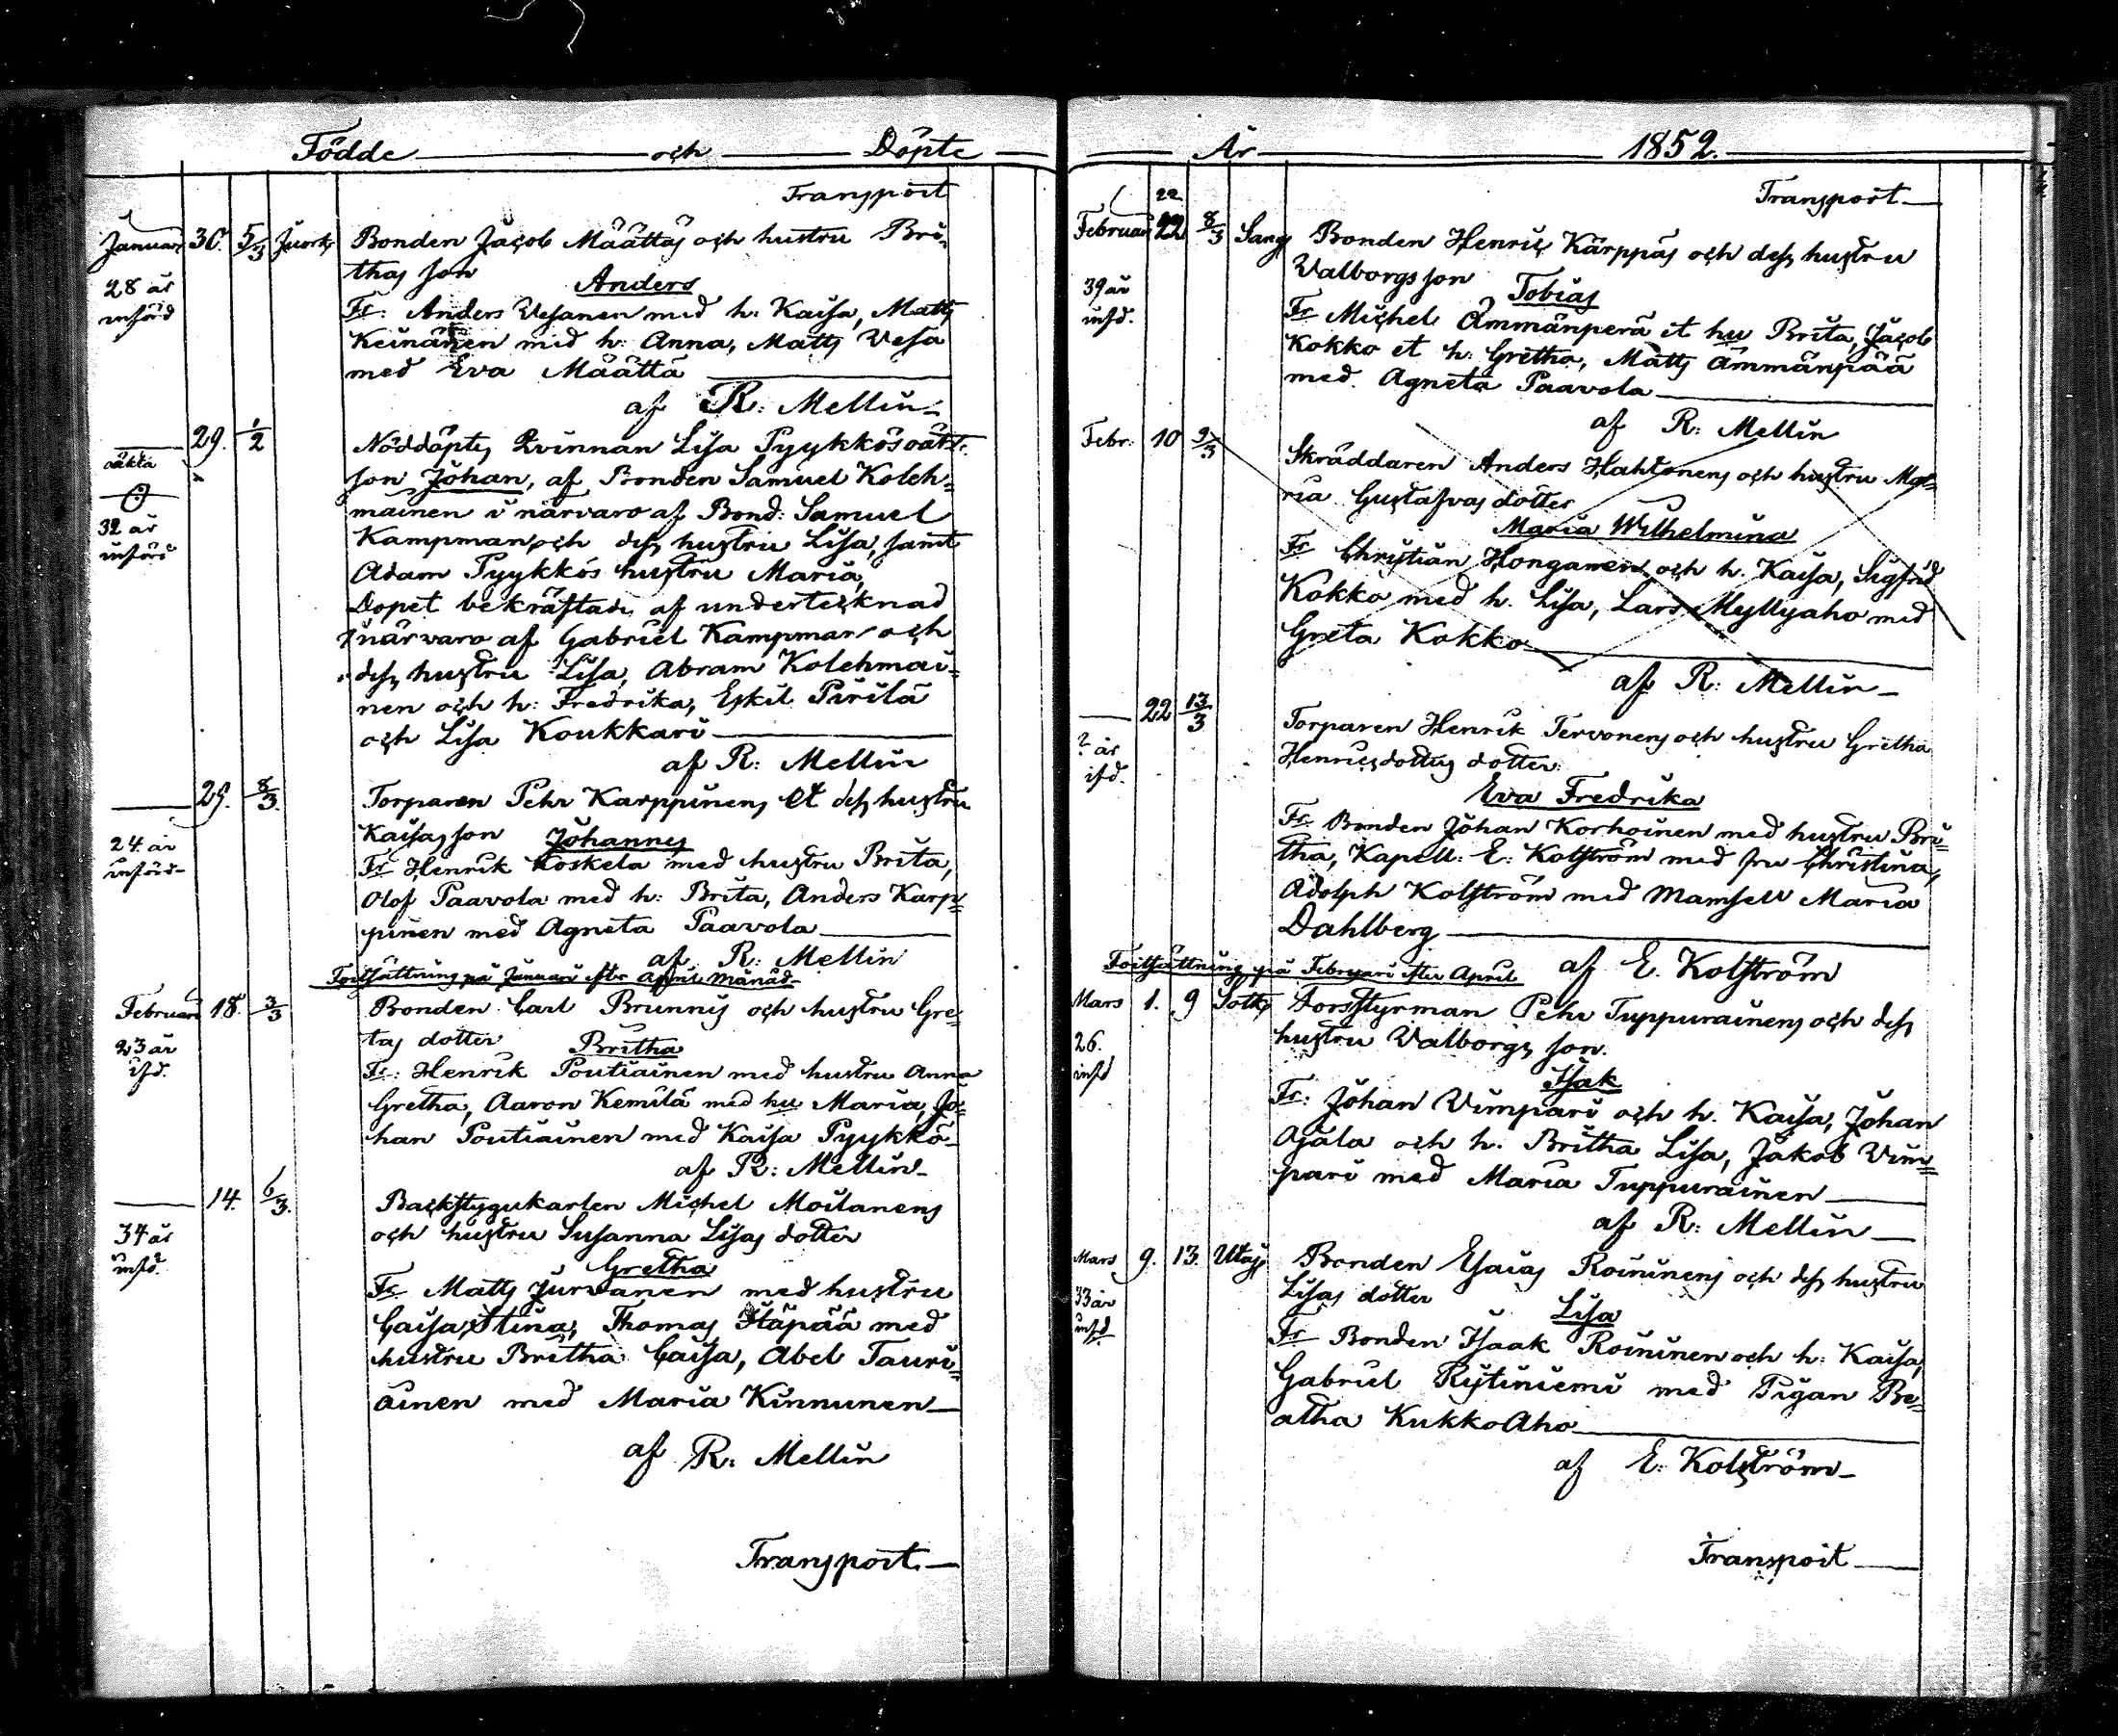 Födde och Döpte
Transport
Januari 30. 5/3 Juork. Bonden Jacob Määttäs och hustru Bri-
28 år införd
thas son Anders
Fr: Anders Vesanen med h: Kaisa, Matts
Keinänen med h: Anna, Matts Vesa
med Eva Määttä
af R: Mellin
29. 1/2 Nöddöpts Qvinnan Lisa Pyykkös oäkt.
oäkta
32 år införd
son Johan, af Bonden Samuel Koleh=
mainen i närvaro af Bond: Samuel
Kampman och dess hustru Lisa, samt
Adam Pyykkös hustru Maria,
Dopet bekräftade af undertecknad
i närvaro af Gabriel Kampman och
dess hustru Lisa, Abram Kolehmai=
nen och h: Fredrika, Eskil Pirilä
och Lisa Koukkari
af R: Mellin
29. 8/3. Torparen Pehr Karppinens et dess hustru
24 år införd
Kaisas son Johannes
Fr Henrik Koskela med hustru Brita,
Olof Paavola med h: Brita, Anders Karp=
pinen med Agneta Paavola
af R: Mellin
Fortsättning på Januari efter April Månad
Februari 18. 3/3 Bonden Carl Brunnis och hustru Gre-
23 år ifd.
tas dotter Britha
Fr: Henrik Poutiainen med hustru Anna
Gretha, Aaron Kemilä med hu Maria, Jo=
han Poutiainen med Kaisa Pyykkö
af R: Mellin
14. 6/3. Backstygukarlen Michel Moilanens
34 år infd.
och hustru Susanna Lisas dotter
Gretha
Fr Matts Jurvanen med hustru
Caisa Stina, Thomas Häpää med
hustru Britha Caisa, Abel Tauri=
ainen med Maria Kinnunen
af R: Mellin
Transport
År 1852.
Transport
22
Februari 22 8/3 Sang Bonden Henric Kärppäs och dess hustru
39 år infd.
Valborgs son Tobias
Fr Michel Ämmänperä et hu Brita, Jacob
Kokko et h: Gretha, Matts Ämmänpää
med Agneta Paavola
af R: Mellin
Febr. 10 9/3 Skräddaren Anders Hahtonens och hustru Ma=
ria Gustafvas dotter
Maria Wilhelmina
Fr Christian Honganen och h. Kaisa, Sigfrid
Kokko med h. Lisa, Lars Myllyaho med
Greta Kokko
af R: Mellin
22 13/3 Torparen Henrik Tervonens och hustru Gretha
? år ifd.
Henricsdotters dotter
Eva Fredrika
Fr. Bonden Johan Korhoinen med hustru Bri=
tha, Kapell: E: Kolström med fru Christina,
Adolph Kolström med Mamsell Maria
Dahlberg
af E. Kolström
Fortsättning på Februari efter April
Mars 1. 9 Sotk. Forsstyrman Pehr Tuppurainens och dess
26. infd
hustru Valborgs son.
Isak
Fr: Johan Vimpari och h. Kaisa, Johan
Ojala och h. Britha Lisa, Jakob Vim=
pari med Maria Tuppurainen
af R: Mellin
Mars 9. 13. Utaj. Bonden Esaias Roininens och dess hustru
33 år infd.
Lisas dotter Lisa
Fr Bonden Isaak Roininen och h: Kaisa,
Gabriel Rytiniemi med Pigan Be=
atha KukkoAho
af E: Kolström
Transport